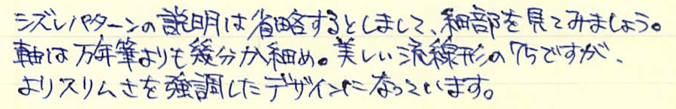 シズレパターンの説明は省略するとしまして、細部を見てみましょう。
軸は万年筆よりも幾分か細め。美しい流線形の75ですが、
よりスリムさを強調したデザインになっています。